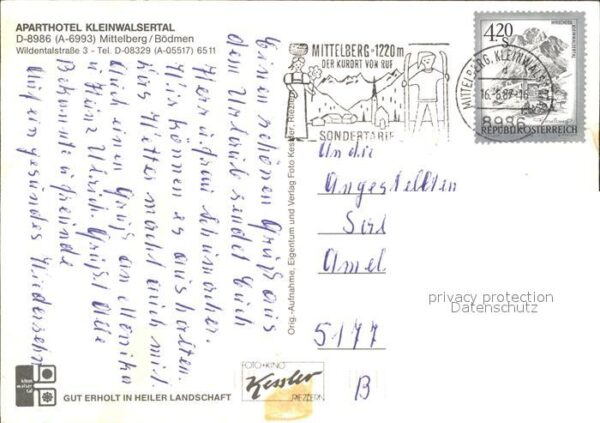 APARTHOTEL KLEINWALSERTAL
D-8986 (A-6993) Mittelberg/Bödmen
Wildentalstraße 3 - Tel. D-08329 (A-05517) 6511
Einen schönen Gruß aus
dem Urlaub sendet Euch
Herr u Frau Schumacher.
Wir können es aushalten.
Das Wetter macht auch mit
Auch einen Gruß an Monika
u Heinz Ulrich. Grüßt Alle
Bekannte u Freunde
Auf ein gesundes Wiedersehn
klein
walser
tal
GUT ERHOLT IN HEILER LANDSCHAFT
Orig.-Aufnahme, Eigentum und Verlag Foto Kessler, Riezlern
FOTO+KINO
Kessler
RIEZLERN
MITTELBERG-1220m
DER KURORT VON RUF
SONDERTARIF
MITTELBERG, KLEINWALS
16.-6.87-16
8986
4.20
S
REPUBLIK ÖSTERREICH
An die
Angestellten
Sirl
Amel
5177
B
privacy protection
Datenschutz